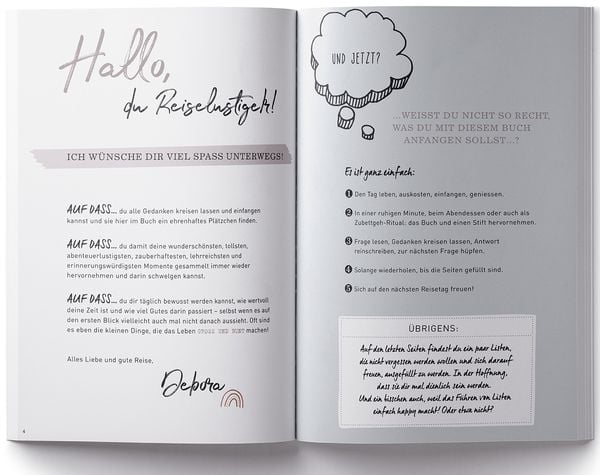 Hallo,
du Reiselustige/r!
ICH WÜNSCHE DIR VIEL SPASS UNTERWEGS!
AUF DASS... du alle Gedanken kreisen lassen und einfangen
kannst und sie hier im Buch ein ehrenhaftes Plätzchen finden.
AUF DASS... du damit deine wunderschönsten, tollsten,
abenteuerlustigsten, zauberhaftesten, lehrreichsten und
erinnerungswürdigsten Momente gesammelt immer wieder
hervornehmen und darin schwelgen kannst.
AUF DASS... du dir täglich bewusst werden kannst, wie wertvoll
deine Zeit ist und wie viel Gutes darin passiert - selbst wenn es auf
den ersten Blick vielleicht auch mal nicht danach aussieht. Oft sind
es eben die kleinen Dinge, die das Leben GROSS UND BUNT machen!
Alles Liebe und gute Reise,
Debora
4
UND JETZT?
...WEISST DU NICHT SO RECHT,
WAS DU MIT DIESEM BUCH
ANFANGEN SOLLST...?
Es ist ganz einfach:
1 Den Tag leben, auskosten, einfangen, geniessen.
2 In einer ruhigen Minute, beim Abendessen oder auch als
Zubettgeh-Ritual: das Buch und einen Stift hervornehmen.
3 Frage lesen, Gedanken kreisen lassen, Antwort
reinschreiben, zur nächsten Frage hüpfen.
4 Solange wiederholen, bis die Seiten gefüllt sind.
5 Sich auf den nächsten Reisetag freuen!
ÜBRIGENS:
Auf den letzten Seiten findest du ein paar Listen,
die nicht vergessen werden wollen und sich darauf
freuen, ausgefüllt zu werden. In der Hoffnung,
dass sie dir mal dienlich sein werden.
Und ein bisschen auch, weil das Führen von Listen
einfach happy macht! Oder etwa nicht?